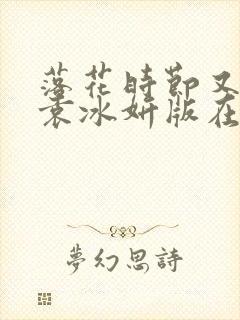 落花時節又
袁冰妍版在
夢幻思詩